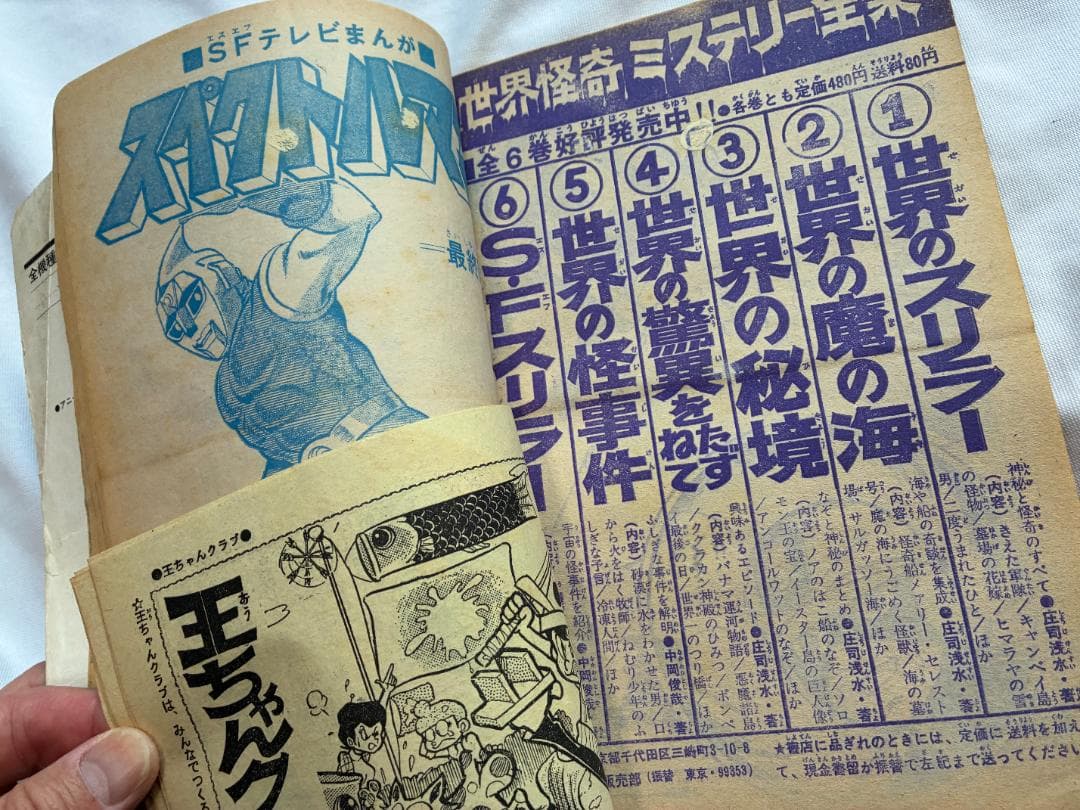 ■SFテレビまんが■
スペクトルマ
最終
世界怪奇ミステリー全集
全6巻好評発売中!!●各巻とも定価480円送料80円
①世界のスリラー
神秘と怪奇のすべて●庄司浅水・著
(内容)きえた軍隊/キャンベイ島
の怪物/墓場の花嫁/ヒマラヤの雪
男/二度うまれたひと/ほか
②世界の魔の海
海や船の奇談を集成●庄司浅水・著
(内容)怪奇船/メアリー・セレスト
号/魔の海にっこめ/怪獣/海の墓
場、サルガッソー海/ほか
③世界の秘境
なぞと神秘のまとめ●庄司浅水・著
(内容)ノアのはこ船のなぞ/ソロ
モン王の宝/イースター島の巨人像
/アンコールワットのなぞ/ほか
④世界の驚異をたずねて
興味あるエピソード●庄司浅水・著
(内容)パナマ運河物語/悪魔諸島
/ククルカン神殿のひみつ/ポンペ
最後の日/世界一のつり橋/ほか
⑤世界の怪事件
ふしぎな事件を解明●中岡俊哉・著
(内容)砂漠に水をわかせた男/口
から火をはく牧師/ねむり少年のふ
しぎな予言/冷凍人間/ほか
⑥S・Fスリラー
宇宙の怪事件を紹介●中岡俊哉・著
京都千代田区三崎町3-10-8
販売部(振替 東京・99353)
★書店に品ぎれのときには、定価に送料を加え
て、現金書留か振替で左記まで送ってください
●王ちゃんクラブ●
王ちゃんク
☆王ちゃんクラブは、みんなでつくる
全機種
●アニ